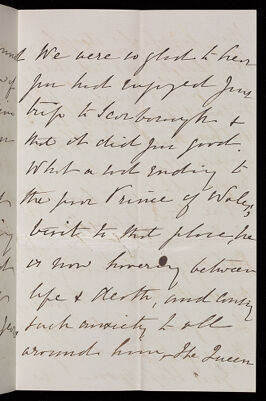 We were so glad to hear
you had enjoyed your
trip to Scarborough &
that it did you good.
What a sad ending to
the poor Prince of Wales,
visit to that place he
is now hovering between
life & death, and causing
such anxiety to all
around him, The Queen